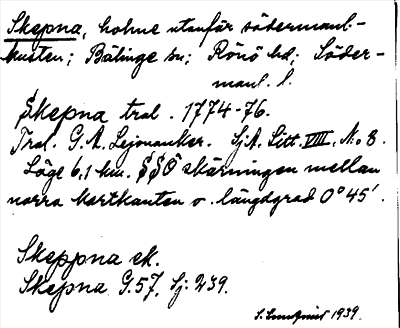 Skepna, holme utanför söderman-
kusten; Bälinge sn; Rönö hd; Söder-
manl. l.
Skepna tral. 1774-76.
Tral. G. A. Lejonanker. SjA. Litt. VIII, No 8.
Läge 6,1 km. SSO skärningen mellan
norra kartkanten o. längdgrad 0°45'.
Skeppna ek.
Skepna G.57. Sj: 239.
1939.